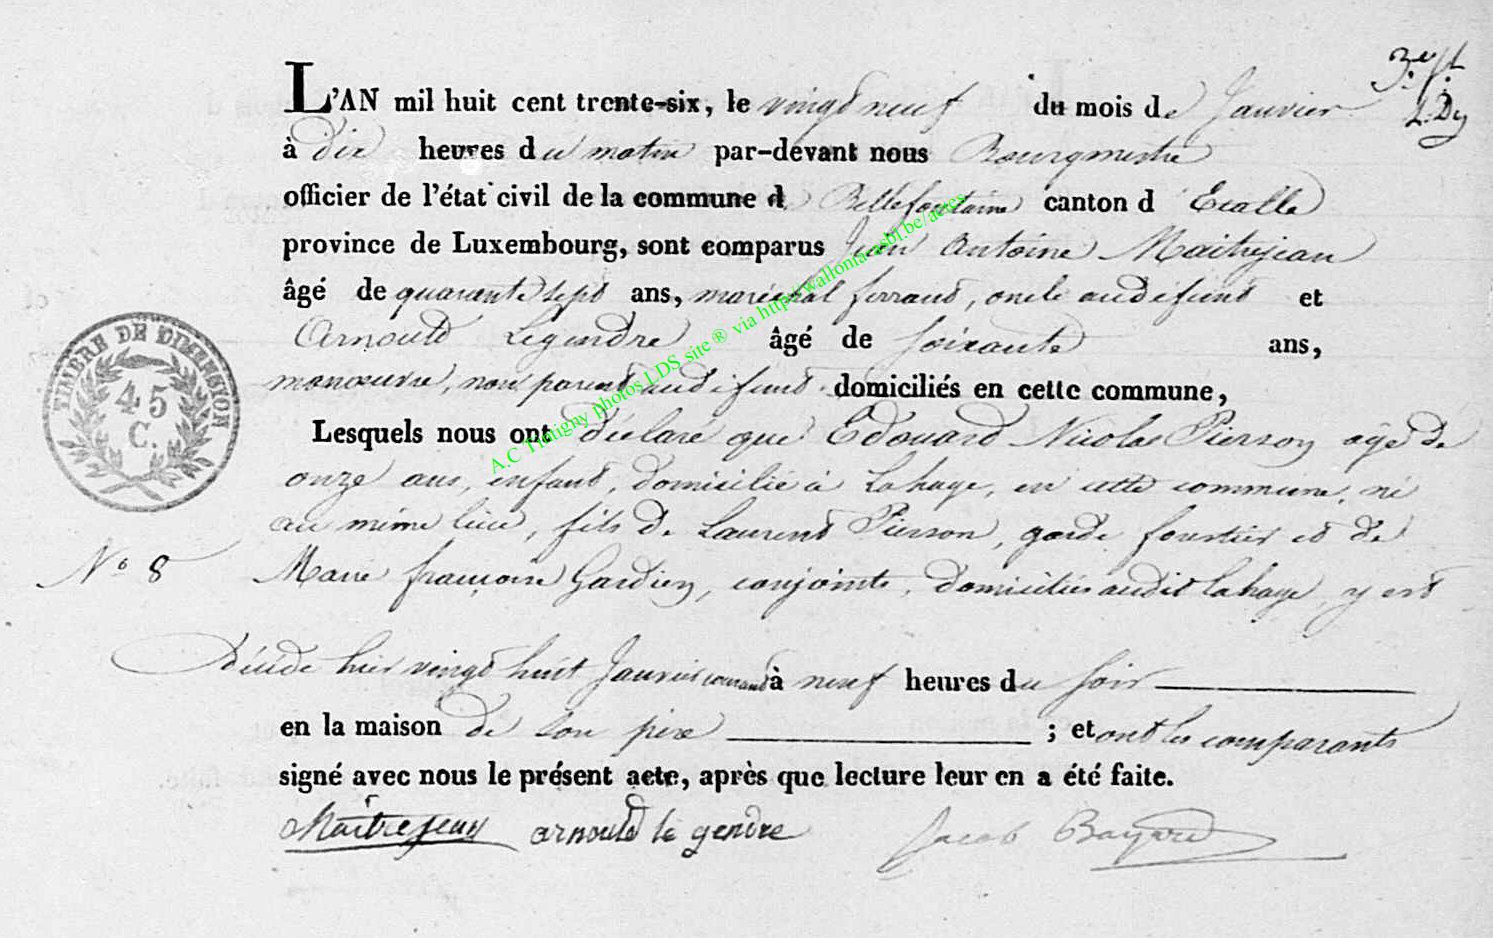 L'AN mil huit cent trente-six, le vingt neuf du mois de Janvier
à dix heures du matin par-devant nous Bourgmestre
officier de l'état civil de la commune de Bellefontaine canton d'Etalle
province de Luxembourg, sont comparus Jean Antoine Maitrejean
âgé de quarante sept ans, maréchal ferrant, oncle au défunt et
Arnould Legendre âgé de soixante ans,
manoeuvre, non parent au défunt domiciliés en cette commune,
Lesquels nous ont déclaré que Edouard Nicolas Pierson âgé de
onze ans, enfant, domicilié à Lahage, en cette commune, né
au même lieu, fils de Laurent Pierson, garde forestier et de
N.o 8
Marie françoise Gardien, conjoints, domiciliés audit Lahage, y est
décédé hier vingt huit Janvier courant à neuf heures du soir
en la maison de son père ; et ont les comparants
signé avec nous le présent acte, après que lecture leur en a été faite.
Maitrejean arnould le gendre Jacob Bayard
TIMBRE DE DIMENSION
45
C.
A.C Tintigny photos LDS site ® via http://wallonia-asbl.be/actes